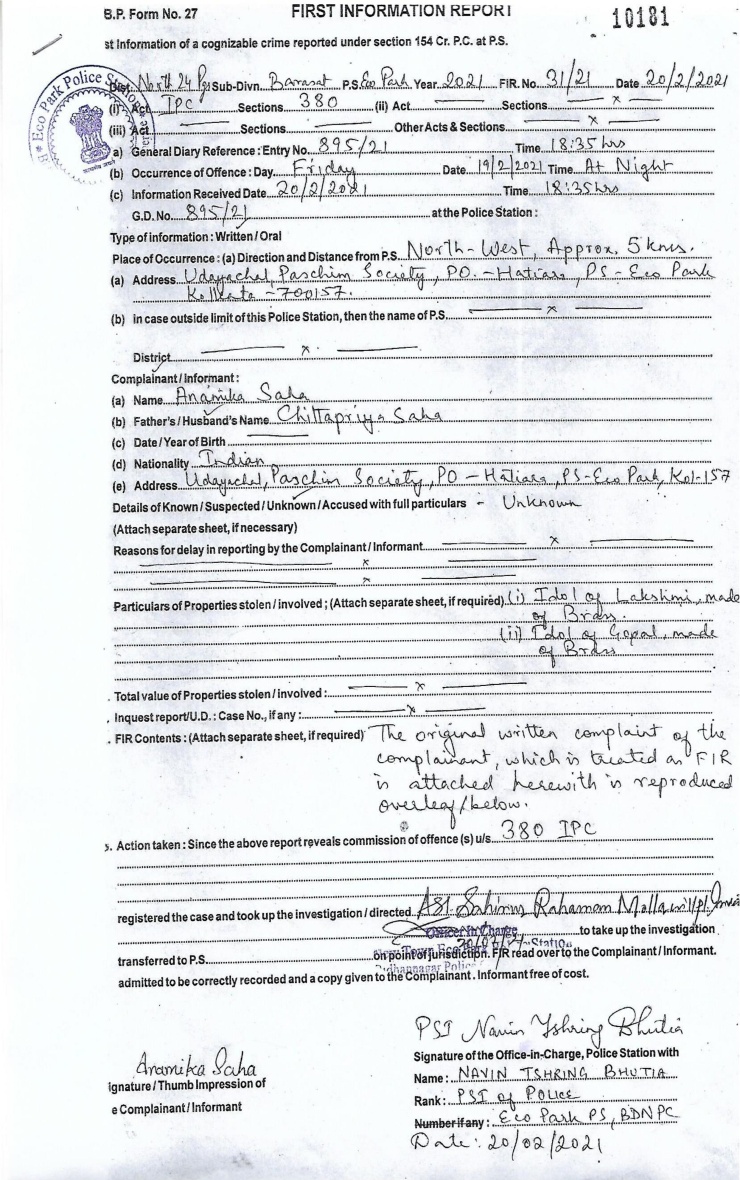 B.P. Form No. 27 FIRST INFORMATION REPORT 10181
st Information of a cognizable crime reported under section 154 Cr. P.C. at P.S.
Eco Park Police
Dist. North 24 Pgs Sub-Divn. Barasat P.S. Eco Park Year 2021 FIR. No. 31/21 Date 20/2/2021
(i) Act IPC Sections 380 (ii) Act Sections x
(iii) Act Sections Other Acts & Sections x
a) General Diary Reference : Entry No. 895/21 Time 18:35 hrs
(b) Occurrence of Offence : Day. Friday Date 19/2/2021 Time At Night
(c) Information Received Date 20/2/2021 Time 18:35 hrs
G.D. No. 895/21 at the Police Station :
Type of information : Written / Oral
Place of Occurrence : (a) Direction and Distance from P.S. North-West, Approx. 5 kms.
(a) Address Udayachal, Paschim Society, PO. - Hatiara, PS - Eco Park
Kolkata - 700157.
(b) in case outside limit of this Police Station, then the name of P.S. x
District x
Complainant / Informant :
(a) Name Anamika Saha
(b) Father's / Husband's Name Chittapriya Saha
(c) Date / Year of Birth
(d) Nationality Indian
(e) Address Udayachal, Paschim Society, PO - Hatiara, PS-Eco Park, Kol-157
Details of Known / Suspected / Unknown / Accused with full particulars - Unknown
(Attach separate sheet, if necessary)
Reasons for delay in reporting by the Complainant / Informant x
x
x
Particulars of Properties stolen / involved ; (Attach separate sheet, if required) (i) Idol of Lakshmi, made
of Brass.
(ii) Idol of Gopal, made
of Brass
. Total value of Properties stolen / involved : x
. Inquest report/U.D. : Case No., if any : x
. FIR Contents : (Attach separate sheet, if required) The original written complaint of the
complainant, which is treated as FIR
is attached herewith is reproduced
overleaf/below.
5. Action taken : Since the above report reveals commission of offence (s) u/s. 380 IPC
registered the case and took up the investigation / directed ASI Sahinur Rahaman Molla
Officer In Charge to take up the investigation
transferred to P.S. on point of jurisdiction. FIR read over to the Complainant / Informant.
admitted to be correctly recorded and a copy given to the Complainant. Informant free of cost.
PSI Navin Tshring Bhutia
Anamika Saha Signature of the Office-in-Charge, Police Station with
ignature / Thumb Impression of Name : NAVIN TSHRING BHUTIA
e Complainant / Informant Rank : PSI of POLICE
Number if any : Eco Park PS, BDNPC
Date : 20/02/2021